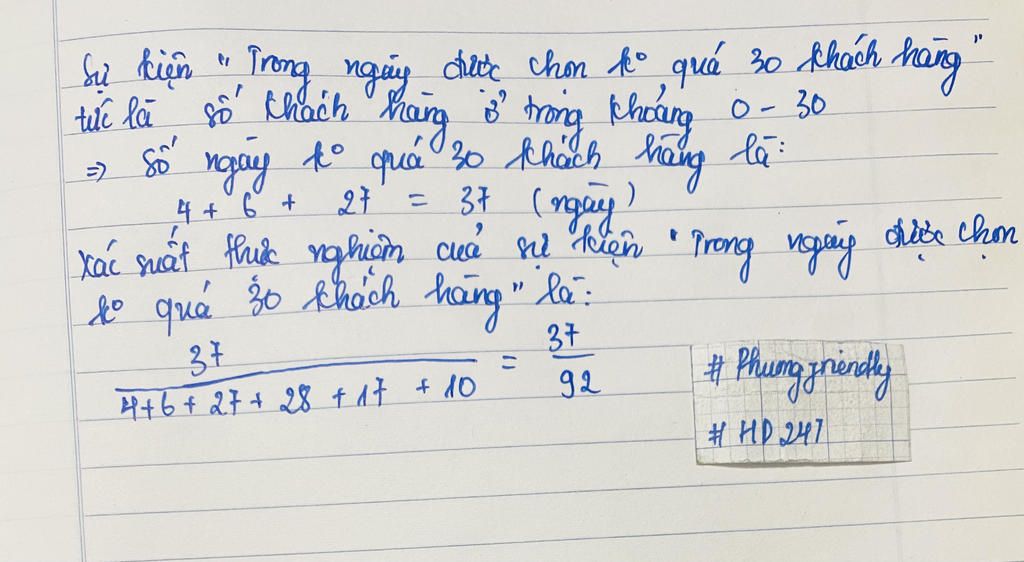 Sự kiện "Trong ngày được chọn k° quá 30 khách hàng"
tức là số khách hàng ở trong khoảng 0 - 30
=> Số ngày k° quá 30 khách hàng là:
4 + 6 + 27 = 37 (ngày)
Xác suất thực nghiệm của sự kiện "Trong ngày được chọn
k° quá 30 khách hàng" là:
37 / 4+6+27+28+17+10 = 37 / 92
# Phungfriendly
# HD247